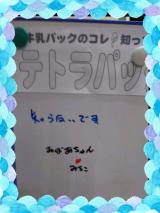 牛乳パックのコレ知っ
テトラパッ
知らないです
おばあちゃん
みちこ